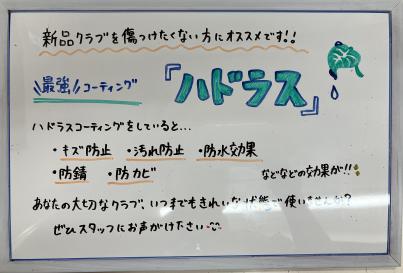 新品クラブを傷つけたくない方にオススメです!!
\\最強// コーティング
『ハドラス』
ハドラスコーティングをしていると...
・キズ防止 ・汚れ防止 ・防水効果
・防錆 ・防カビ
などなどの効果が!!
あなたの大切なクラブ、いつまでもきれいな状態で使いませんか?
ぜひスタッフにお声がけ下さい